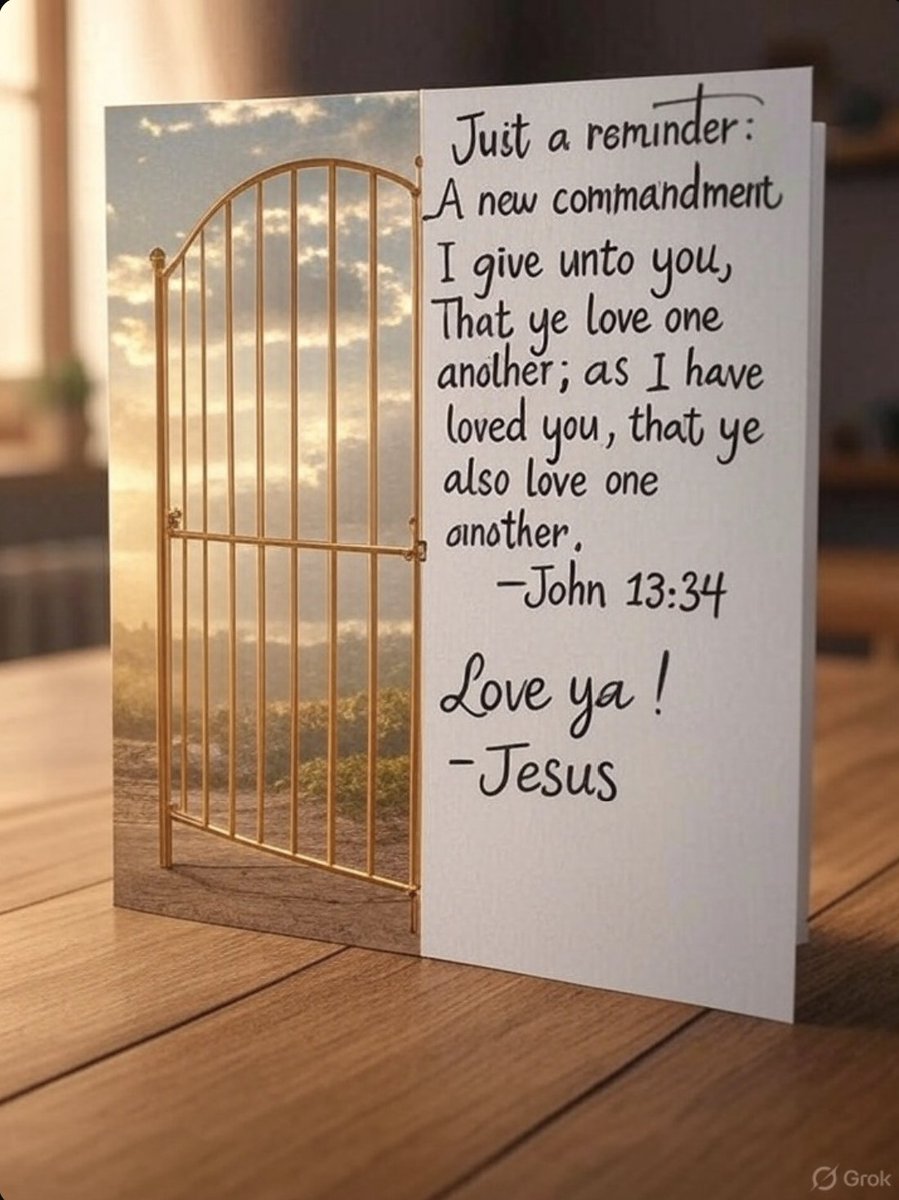 Just a reminder:
A new commandment
I give unto you,
That ye love one
another; as I have
loved you, that ye
also love one
another.
—John 13:34
Love ya!
-Jesus
Grok